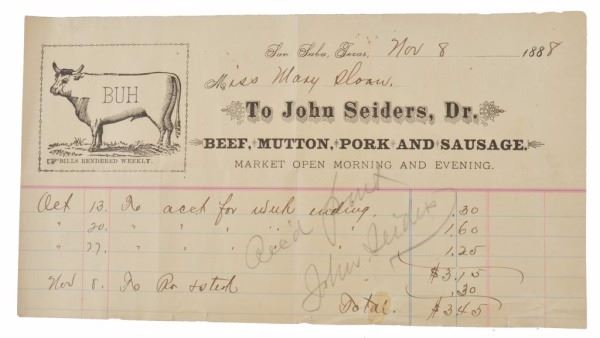 San Saba, Texas, Nov 8 1888
Miss Mary Sloan.
To John Seiders, Dr.
BUH
BEEF, MUTTON, PORK AND SAUSAGE.
BILLS RENDERED WEEKLY.
MARKET OPEN MORNING AND EVENING.
Oct 13. To acct for week ending. .30
" 20. " " " " " 1.60
" 27. " " " " " 1.25
$3.15
Nov 8. To Ro steak .30
Total. $3.45
Rec'd
John Seiders